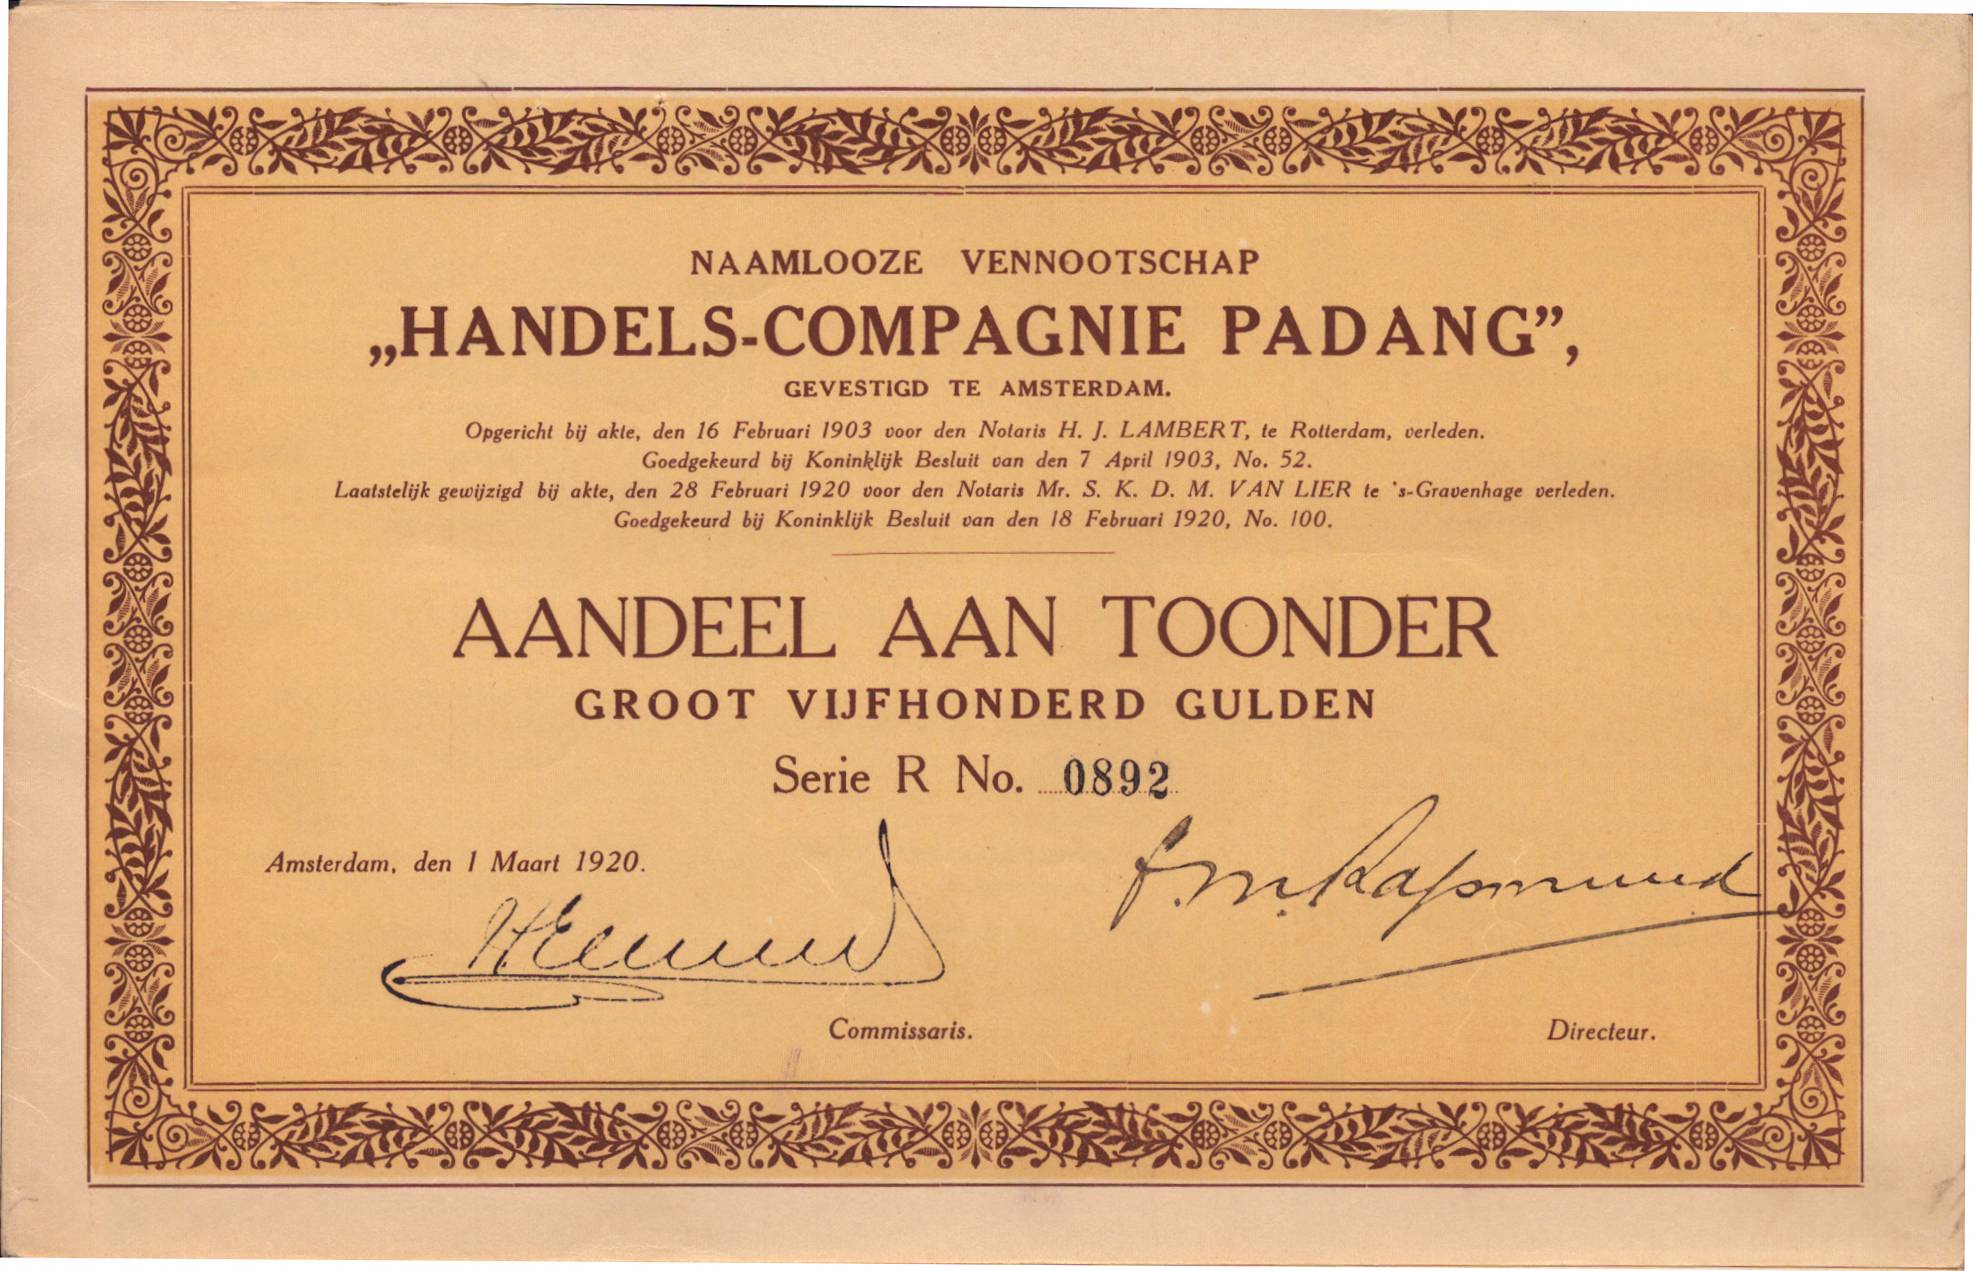 NAAMLOOZE VENNOOTSCHAP
„HANDELS-COMPAGNIE PADANG”,
GEVESTIGD TE AMSTERDAM.
Opgericht bij akte, den 16 Februari 1903 voor den Notaris H. J. LAMBERT, te Rotterdam, verleden.
Goedgekeurd bij Koninklijk Besluit van den 7 April 1903, No. 52.
Laatstelijk gewijzigd bij akte, den 28 Februari 1920 voor den Notaris Mr. S. K. D. M. VAN LIER te 's-Gravenhage verleden.
Goedgekeurd bij Koninklijk Besluit van den 18 Februari 1920, No. 100.
AANDEEL AAN TOONDER
GROOT VIJFHONDERD GULDEN
Serie R No. 0892
Amsterdam, den 1 Maart 1920.
Commissaris. Directeur.